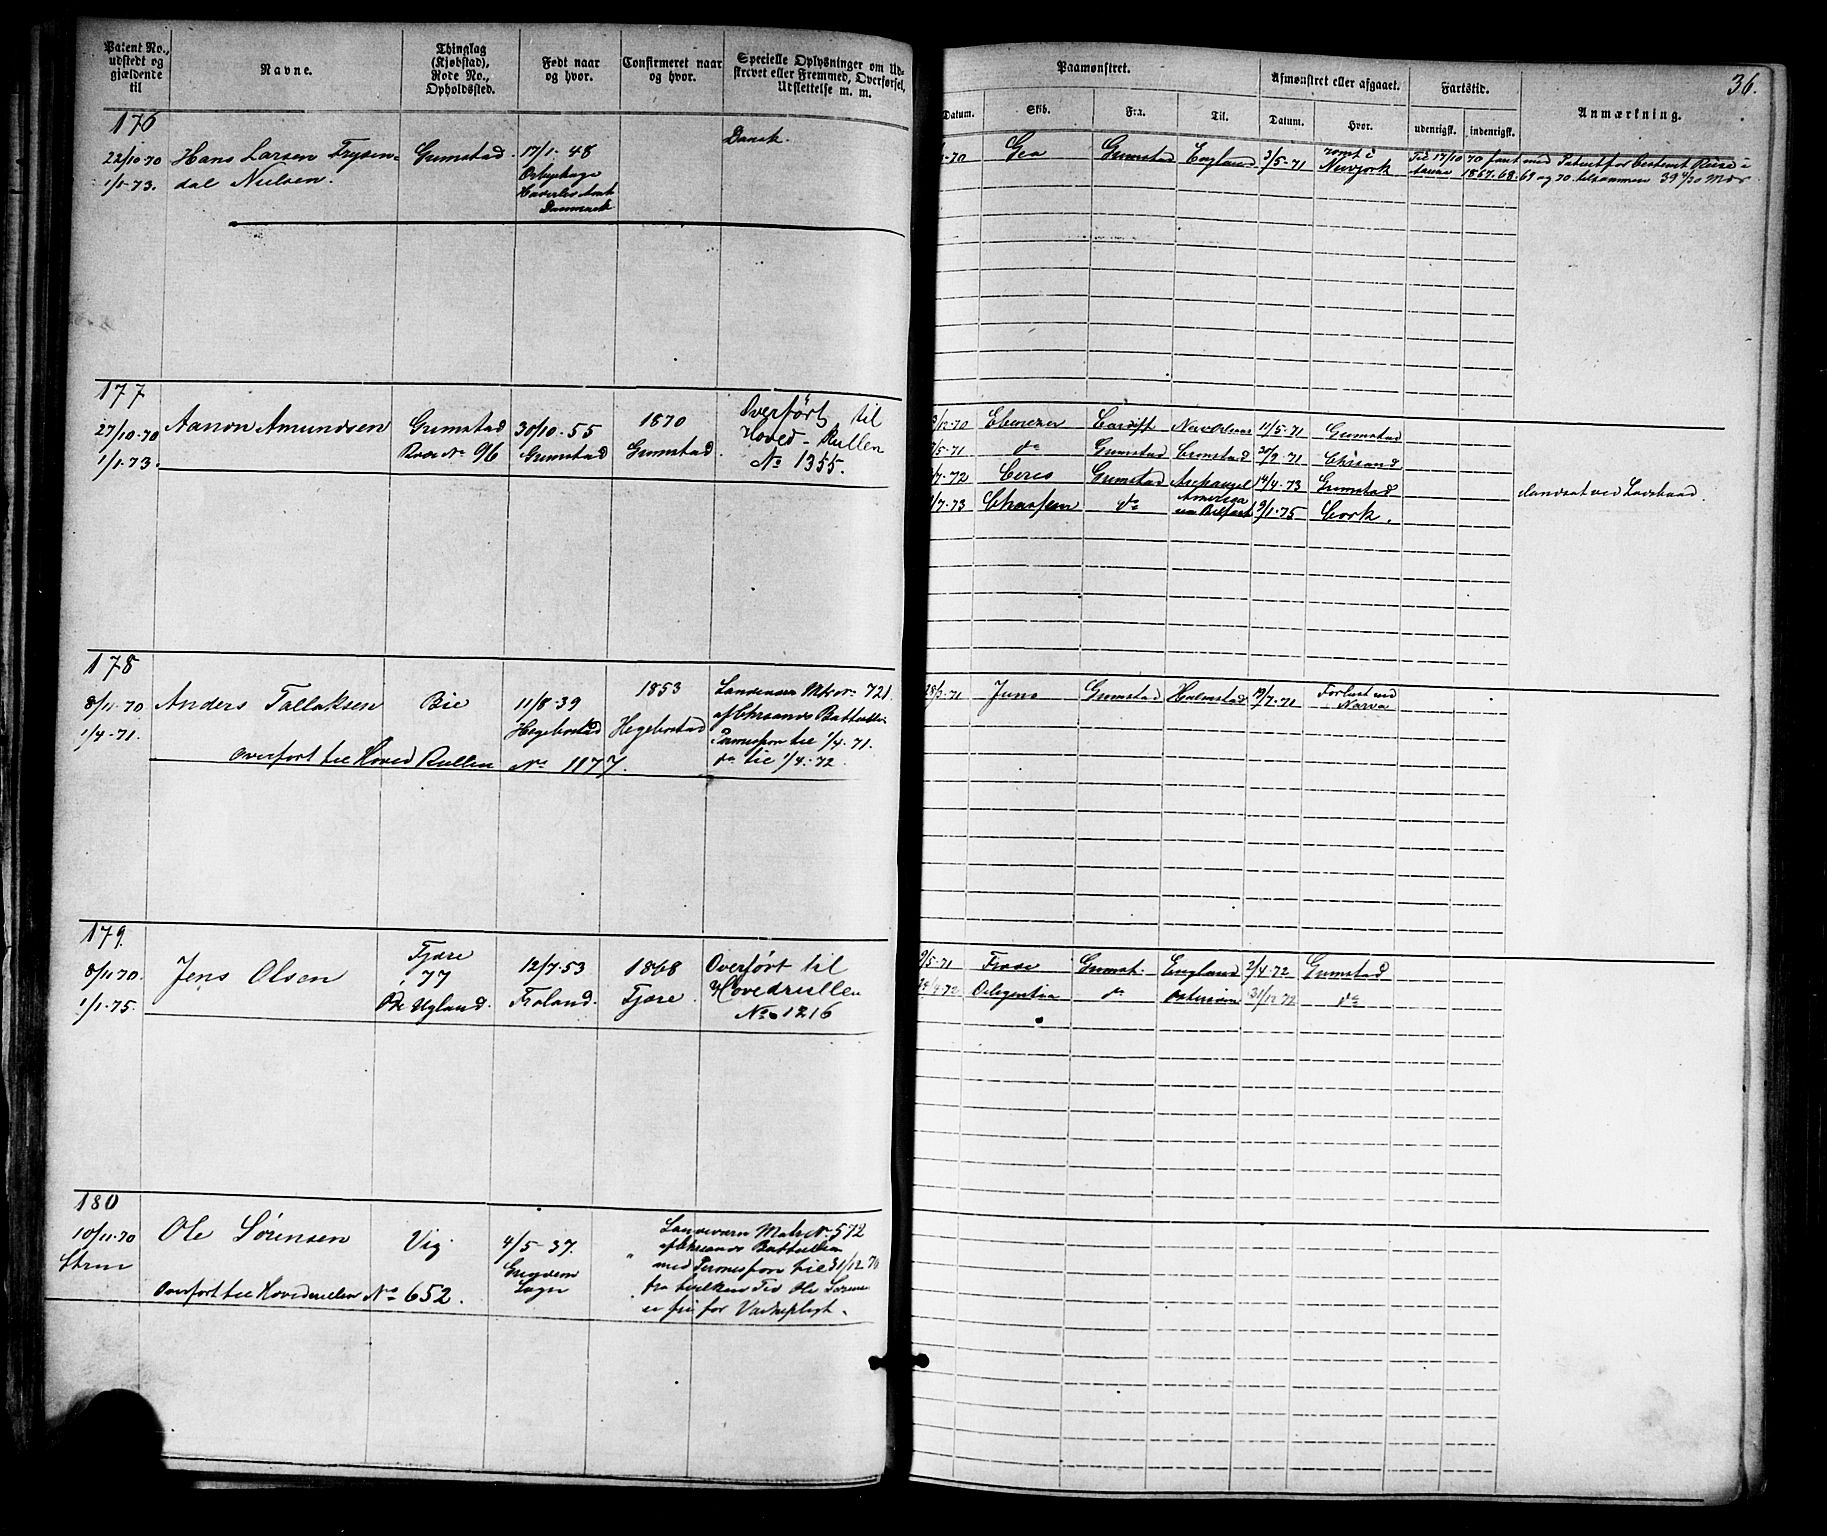 36.
Patent No., udstedt og gjældende til
Navne.
Thinglag (Kjøbstad), Rode No., Opholdssted.
Født naar og hvor.
Confirmeret naar og hvor.
Specielle Oplysninger om Udskrevet eller Fremmed, Overførsel, Udslettelse m. m.
Paamønstret.
Datum.
Skib.
Fra.
Til.
Afmønstret eller afgaaet.
Datum.
Hvor.
Fartstid.
udenrigsk.
indenrigsk.
Anmærkning.
176
22/10 70
1/1 73.
Hans Larsen Frysen-
dal Nielsen.
Grimstad
17/1 48
Danmark
Dansk.
70 Gea Grimstad England 3/5 71 rømt i
Newyork
Til 17/10 70 faret med Patent for bestemt Reise i
1867. 68. 69 og 70 tilsammen 39
177
27/10 70
1/1 73.
Aanon Amundsen
Grimstad
Rode No 96
30/10 55
Grimstad
1870
Grimstad
Overført til
Hoved-Rullen
No 1355.
/12 70 Ebenezer Cardiff New Orleans 11/5 71 Grimstad
/5 71 do Grimstad Cronstad 30/9 71 Chrsand
/7 72 Ceres Grimstad Archangel 14/4 73 Grimstad
/7 73 do America
via Belfast 9/1 75 Cork.
178
8/11 70
1/4 71.
Anders Tallaksen
Bie
11/8 39
Hegebostad
1853
Hegebostad
Landeværn Mtr No 721
af Chrsands Battallion
Permission til 1/4 71.
do til 1/4 72.
Overført til Hoved Rullen No 1177.
28/3 71 Juno Grimstad Halmstad 19/7 71 Forlist ved
Narva
179.
8/11 70.
1/1 75.
Jens Olsen
Fjære
77
Ugland.
12/7 53
Froland.
1868
Fjære.
Overført til
Hovedrullen
No 1216
9/5 71 Grimst. England 2/4 72 Grimstad
4/4 72 Deligentia do Østersøen 31/12 72 do
180
10/11 70
Ole Sörensen
Vig
4/5 37.
Landeværn Matr No 572
af Chrsands Battallion
med Permission til 31/12 70
fra hvilken Tid Ole Sörensen
er fri for Værnepligt.
Overført til Hovedrullen No 652.